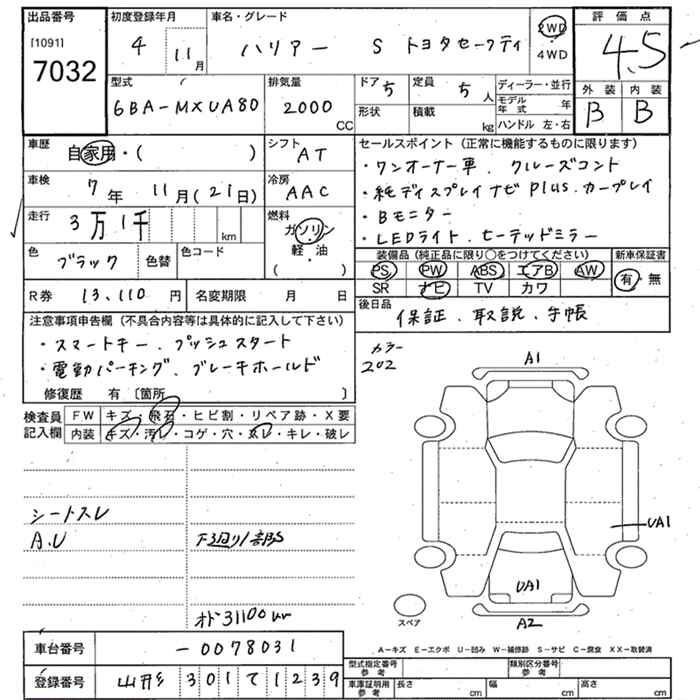 出品番号 初度登録年月 車名・グレード 評価点
[1091] 7032 4 11月 ハリアー S トヨタセーフティ 2WD・4WD 4.5
型式 排気量 ドア 5 定員 5人 ディーラー・並行 外装 内装
6BA-MXUA80 2000CC 形状 積載 kg モデル年式 年 B B
ハンドル 左・右
車歴 自家用・( ) シフト AT セールスポイント (正常に機能するものに限ります)
・ワンオーナー車、クルーズコント
車検 7年 11月(21日) 冷房 AAC ・純ディスプレイナビ plus カープレイ
走行 3万1千 km 燃料 ガソリン・軽油 ( ) ・Bモニター
・LEDライト、ヒーテッドミラー
色 ブラック 色替 色コード 装備品 (純正品に限り○をつけてください) 新車保証書
PS PW ABS エアB AW 有・無
SR ナビ TV カワ
R券 13,110円 名変期限 月 日 後日品
保証、取説、手帳
注意事項申告欄 (不具合内容等は具体的に記入して下さい)
・スマートキー、プッシュスタート カラー 202
・電動パーキング、ブレーキホールド
修復歴 有 〔箇所 〕 A1
検査員記入欄 FW キズ・飛石・ヒビ割・リペア跡・X要
内装 キズ・汚レ・コゲ・穴・スレ・キレ・破レ
シートスレ
A.U 下廻り1部S UA1
UA1
オド31100km スペア A2
A-キズ E-エクボ U-凹み W-補修跡 S-サビ C-腐食 XX-取替済
車台番号 -0078031
型式指定番号 参考 類別区分番号 参考
登録番号 山形 301 て 1239 車庫証明用 参考 長さ cm 幅 cm 高さ cm